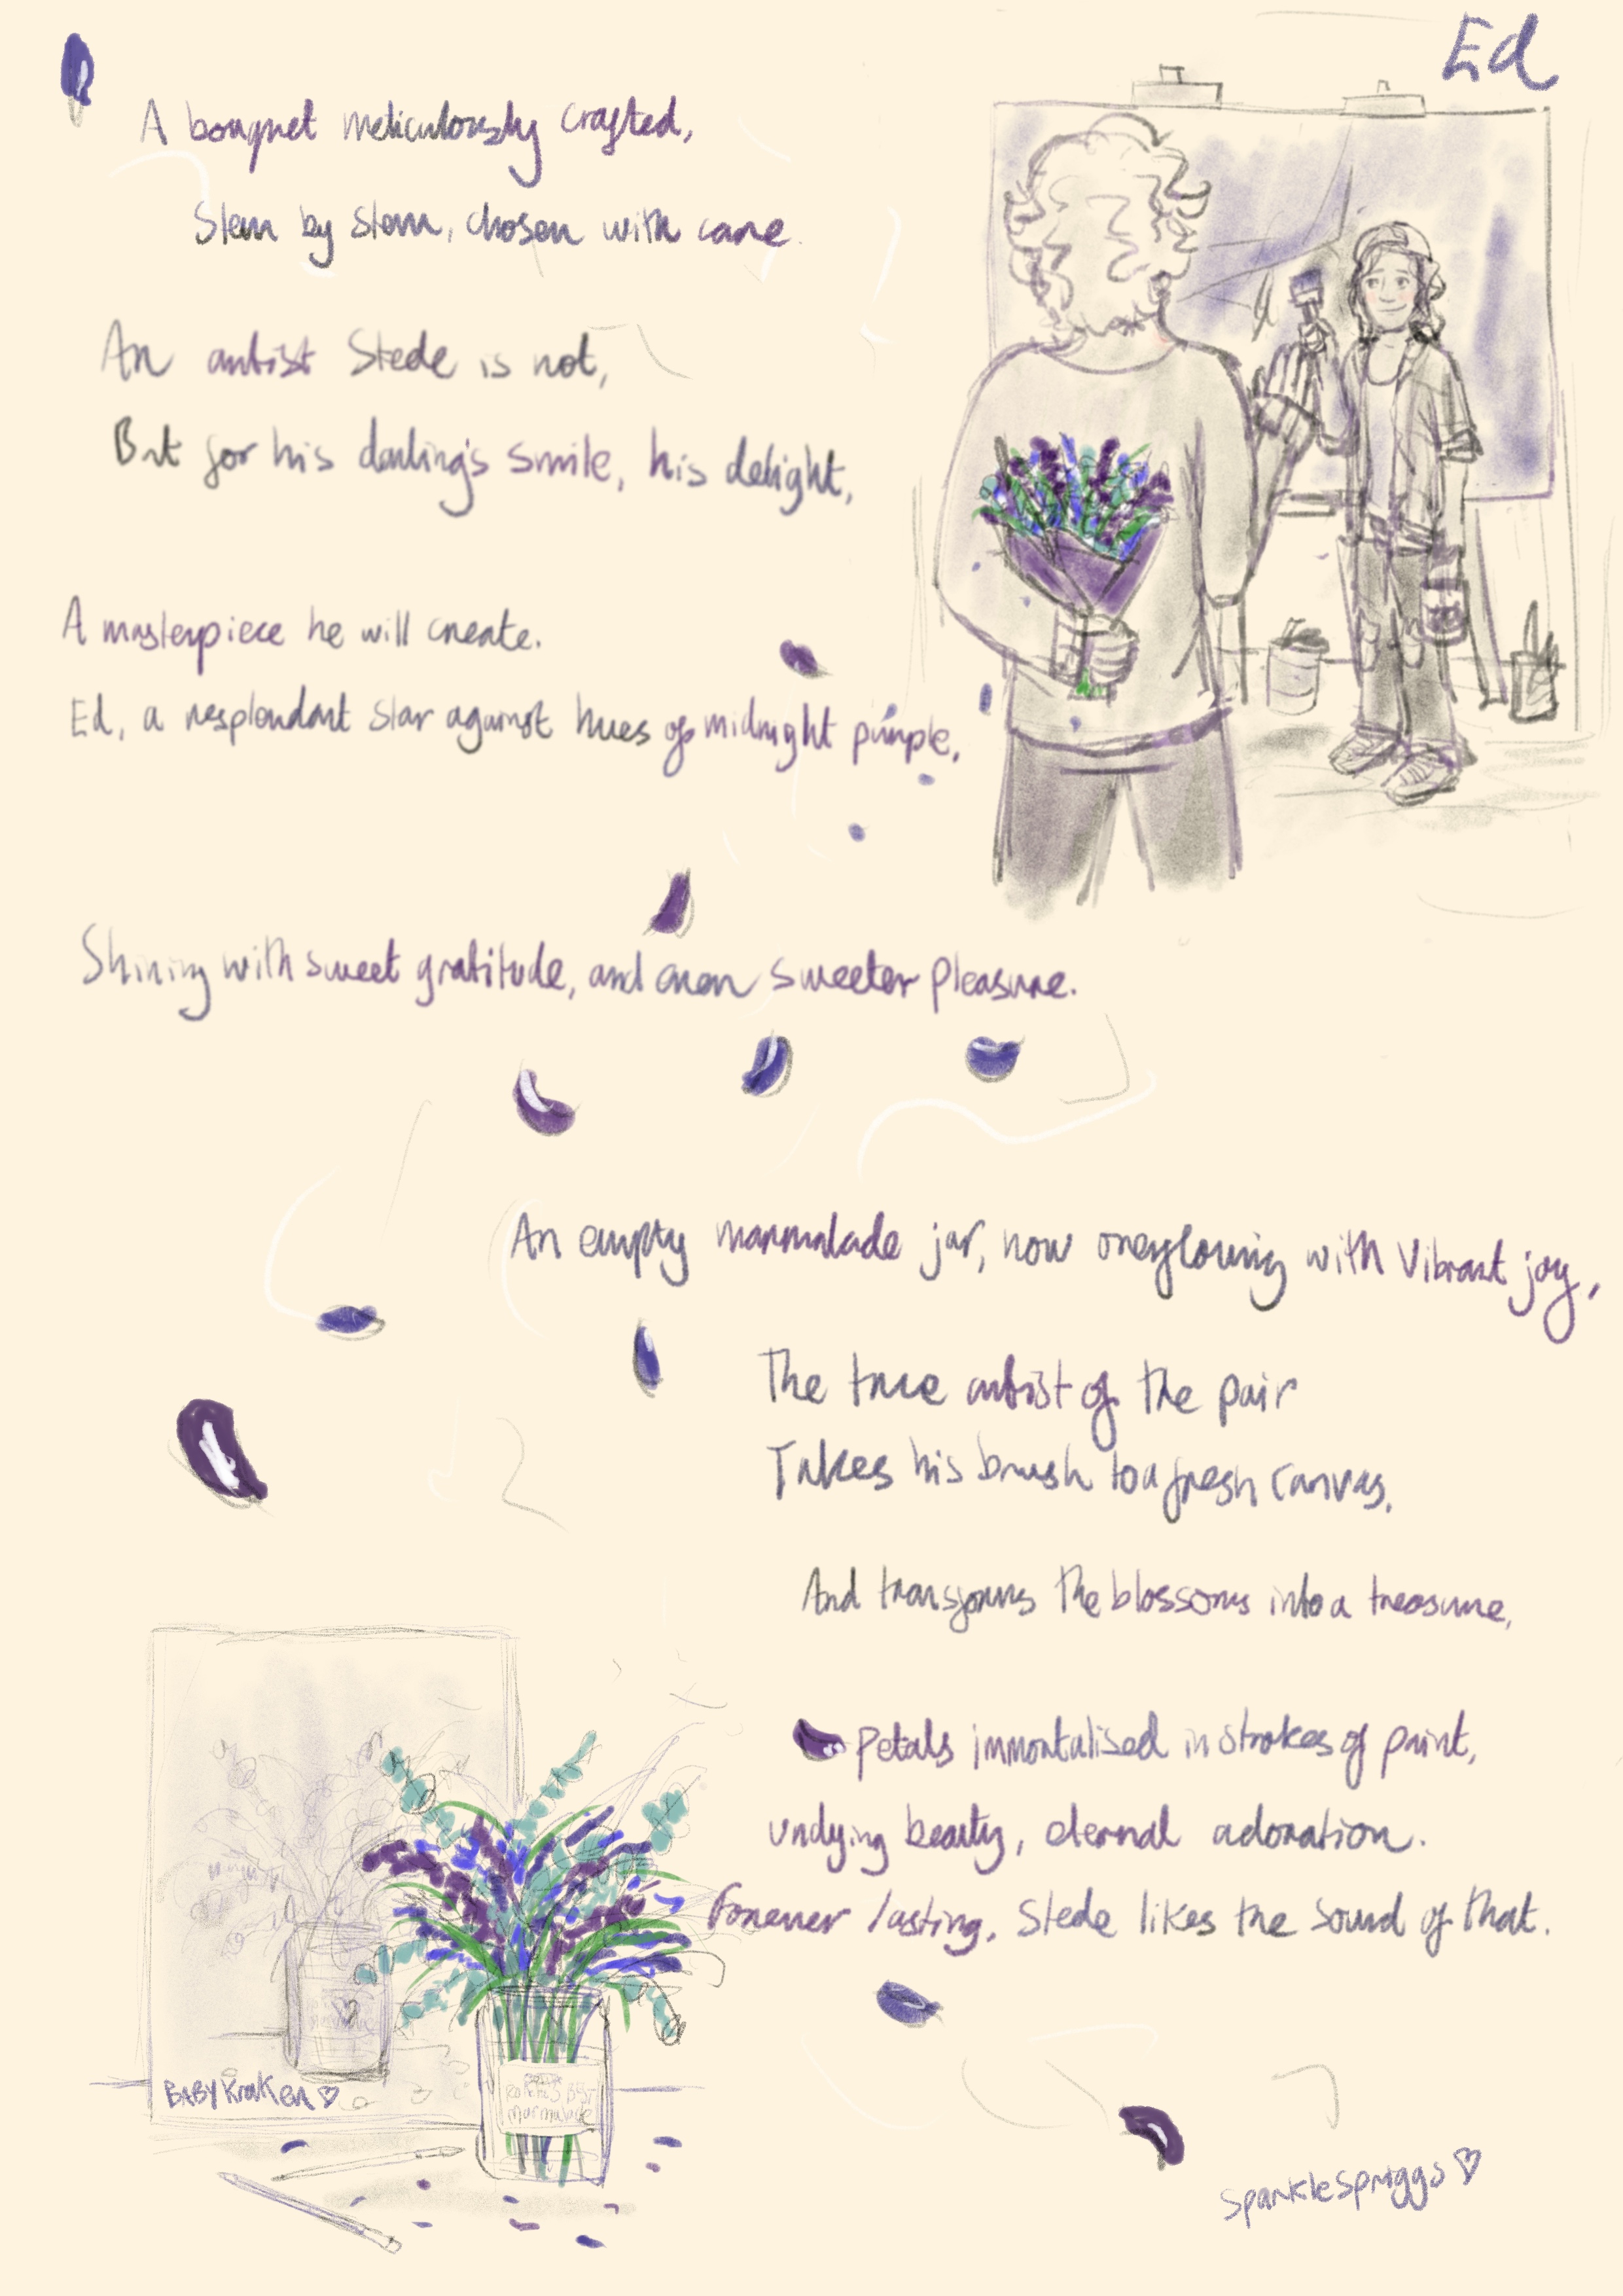 Ed
A bouquet meticulously crafted,
Stem by stem, chosen with care.
An artist Stede is not,
But for his darling's smile, his delight,
A masterpiece he will create.
Ed, a resplendant star against hues of midnight purple,
Shining with sweet gratitude, and even sweeter pleasure.
An empty marmalade jar, now overflowing with vibrant joy,
The true artist of the pair
Takes his brush to a fresh canvas,
And transforms the blossoms into a treasure,
Petals immortalised in strokes of paint,
undying beauty, eternal adoration.
Forever lasting, Stede likes the sound of that.
BABY KraKen ♡
marmalade
SparkleSpriggs ♡